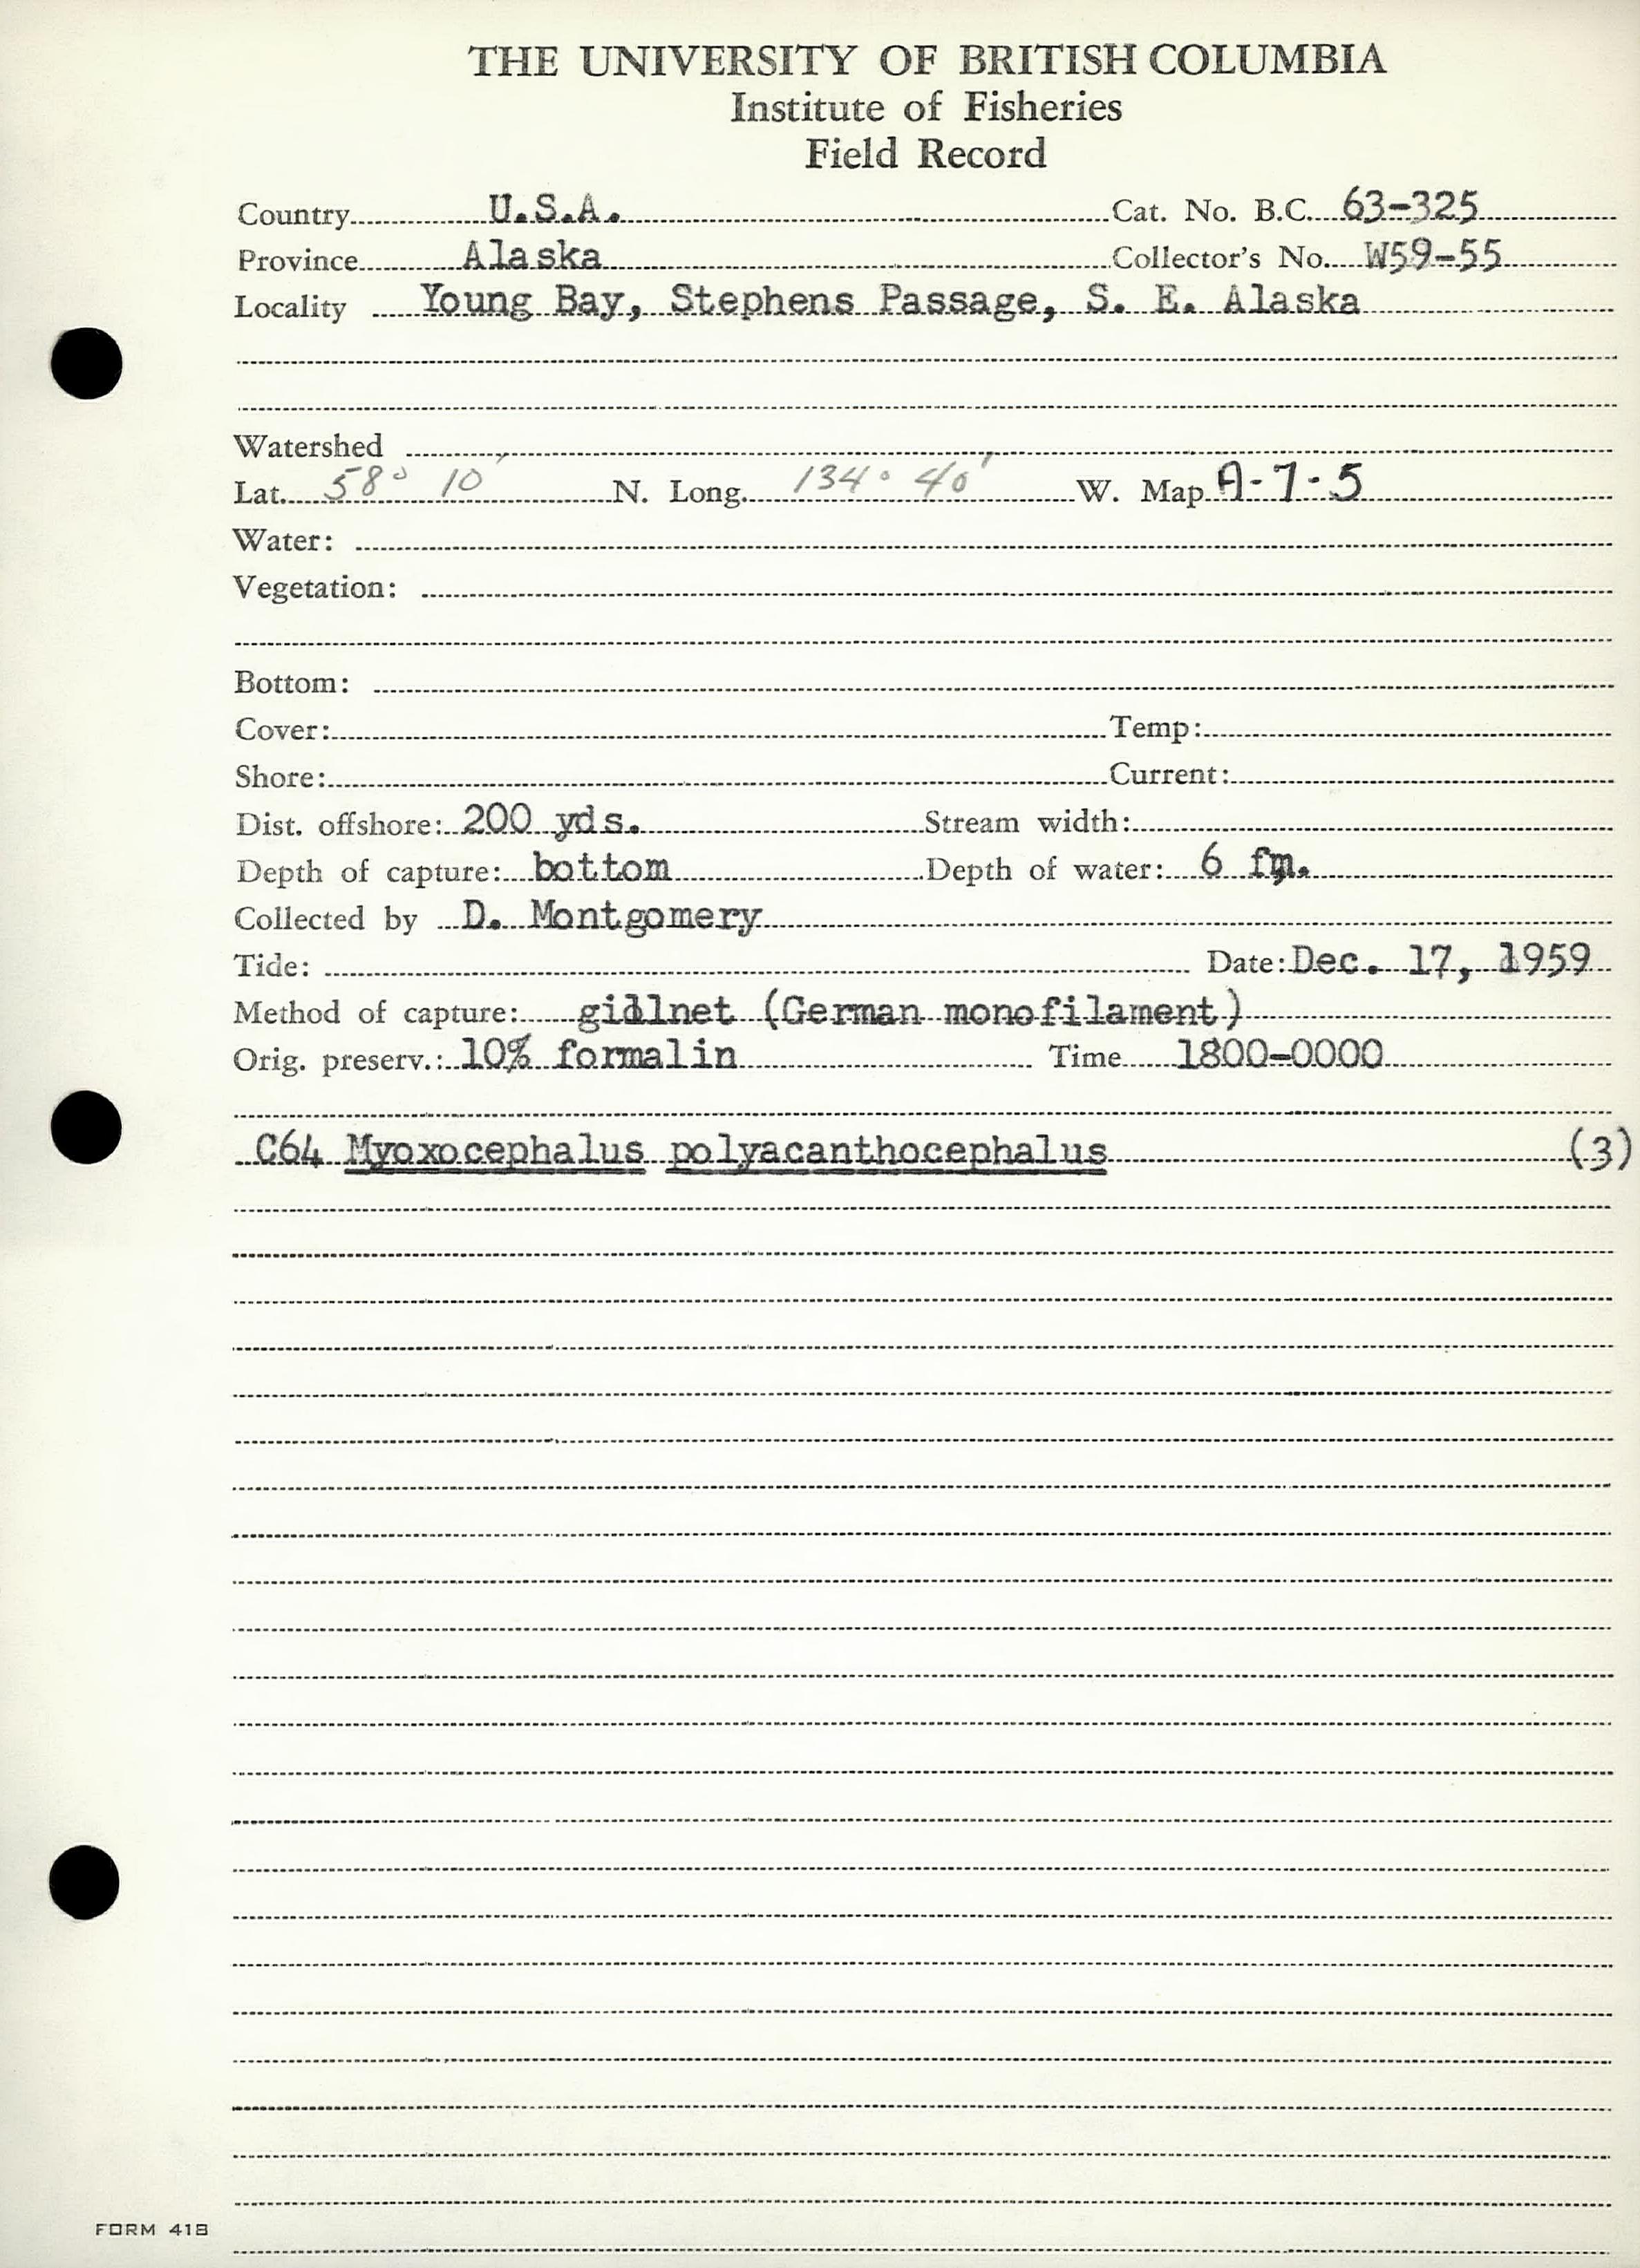 THE UNIVERSITY OF BRITISH COLUMBIA
Institute of Fisheries
Field Record
Country U.S.A. Cat. No. B.C. 63-325
Province Alaska Collector's No. W59-55
Locality Young Bay, Stephens Passage, S. E. Alaska
Watershed
Lat. 58° 10' N. Long. 134° 40' W. Map A-7-5
Water:
Vegetation:
Bottom:
Cover: Temp:
Shore: Current:
Dist. offshore: 200 yds. Stream width:
Depth of capture: bottom Depth of water: 6 fm.
Collected by D. Montgomery
Tide: Date: Dec. 17, 1959
Method of capture: gillnet (German monofilament)
Orig. preserv.: 10% formalin Time 1800-0000
C64 Myoxocephalus polyacanthocephalus (3)
FORM 41B